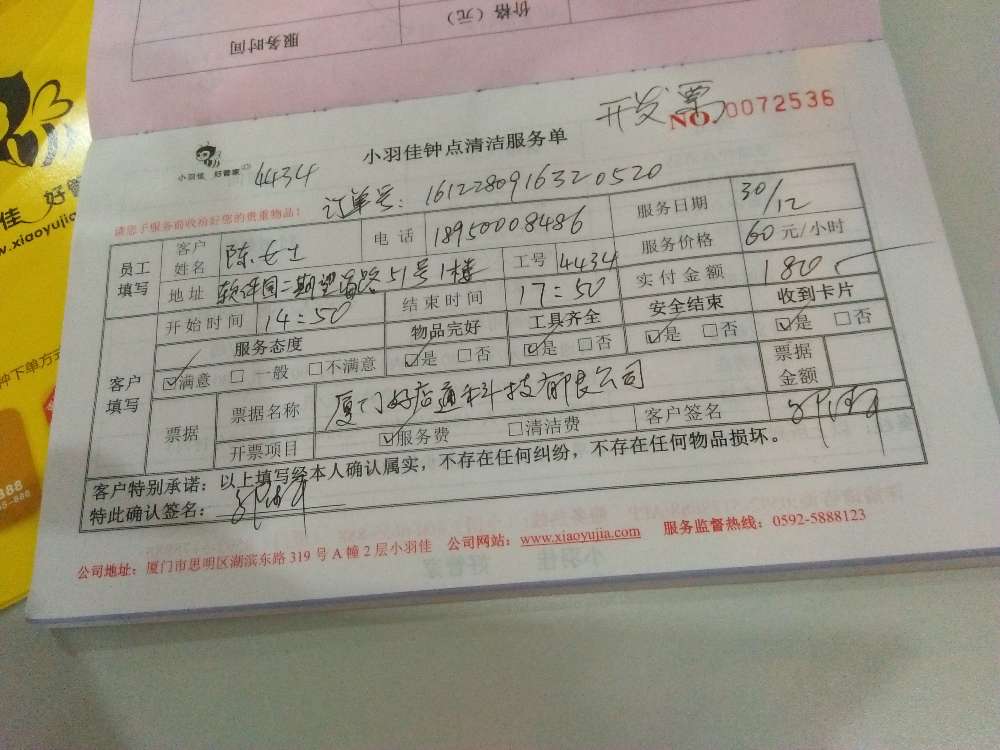 服务时间
价格（元）
开发票
NO.0072536
小羽佳 好管家
4434
小羽佳钟点清洁服务单
订单号：1612280916320520
请您于服务前收纷好您的贵重物品！
员工填写
客户姓名 陈女士 电话 18950008486 服务日期 30/12
地址 软件园二期望海路51号1楼 工号 4434 服务价格 60元/小时
开始时间 14:50 结束时间 17:50 实付金额 180
客户填写
服务态度 物品完好 工具齐全 安全结束 收到卡片
☑满意 □一般 □不满意 ☑是 □否 ☑是 □否 ☑是 □否 ☑是 □否
票据 票据名称 厦门好店通科技有限公司 票据金额
开票项目 ☑服务费 □清洁费 客户签名
客户特别承诺：以上填写经本人确认属实，不存在任何纠纷，不存在任何物品损坏。
特此确认签名：
公司地址：厦门市思明区湖滨东路319号A幢2层小羽佳 公司网站：www.xiaoyujia.com 服务监督热线：0592-5888123
佳 好管
www.xiaoyujia
种下单方式
888